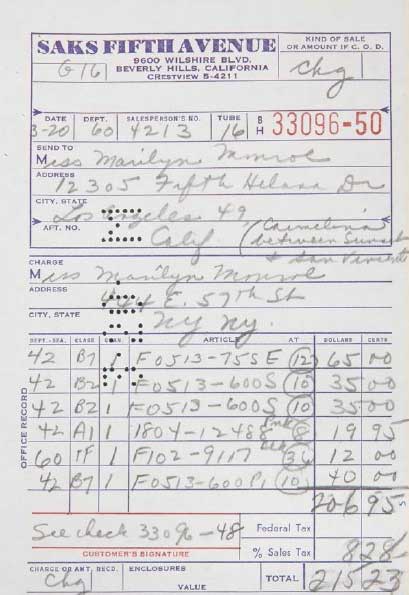 SAKS FIFTH AVENUE
9600 WILSHIRE BLVD.
BEVERLY HILLS, CALIFORNIA
CRESTVIEW 5-4211
KIND OF SALE
OR AMOUNT IF C. O. D.
G16
Chg
DATE DEPT. SALESPERSON'S NO. TUBE BH 33096-50
3-20 60 4213 16
SEND TO
Miss Marilyn Monroe
ADDRESS
12305 Fifth Helana Dr
CITY, STATE
Los Angeles 49,
APT. NO.
Calif. (Carmelina
between Sunset
+ San Vincente
CHARGE
Miss Marilyn Monroe
ADDRESS
444 E. 57th St
CITY, STATE
NY NY.
DEPT.-SEA. CLASS QUAN. ARTICLE AT DOLLARS CENTS
42 B7 1 F0513-755E 12 65 00
42 B2 1 F0513-600S 10 35 00
42 B2 1 F0513-600S 10 35 00
42 A1 1 1804-12488 Pnk 6 19 95
60 1 F102-9117 Blk 36 12 00
42 B7 1 F0513-600P1 10 40 00
OFFICE RECORD
206 95
See check 33096-48
Federal Tax
CUSTOMER'S SIGNATURE
% Sales Tax 828
CHARGE OR ANT. RECD. ENCLOSURES
Chg
VALUE
TOTAL 215 23